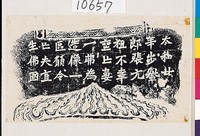 10657
太和廿
年步轝
郎張元
祖不幸
喪亡妻
一弗為
造像一
區願令
亡夫直
生佛國